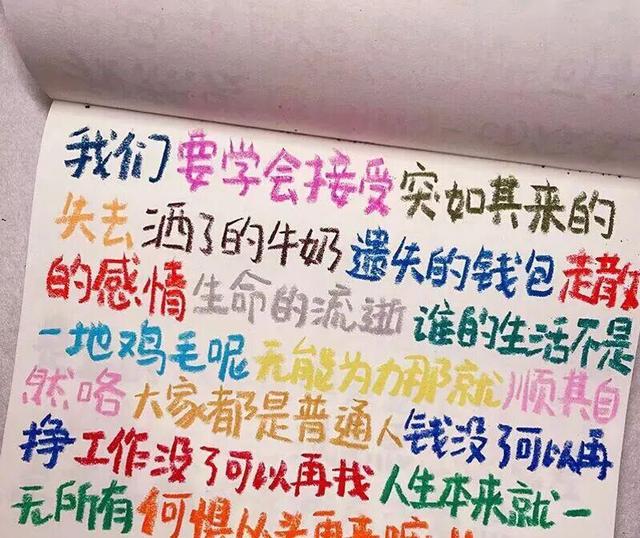 我们要学会接受突如其来的
失去洒了的牛奶遗失的钱包走散
的感情生命的流逝谁的生活不是
一地鸡毛呢无能为力那就顺其自
然咯大家都是普通人钱没了可以再
挣工作没了可以再找人生本来就一
无所有何惧从头再来嘛